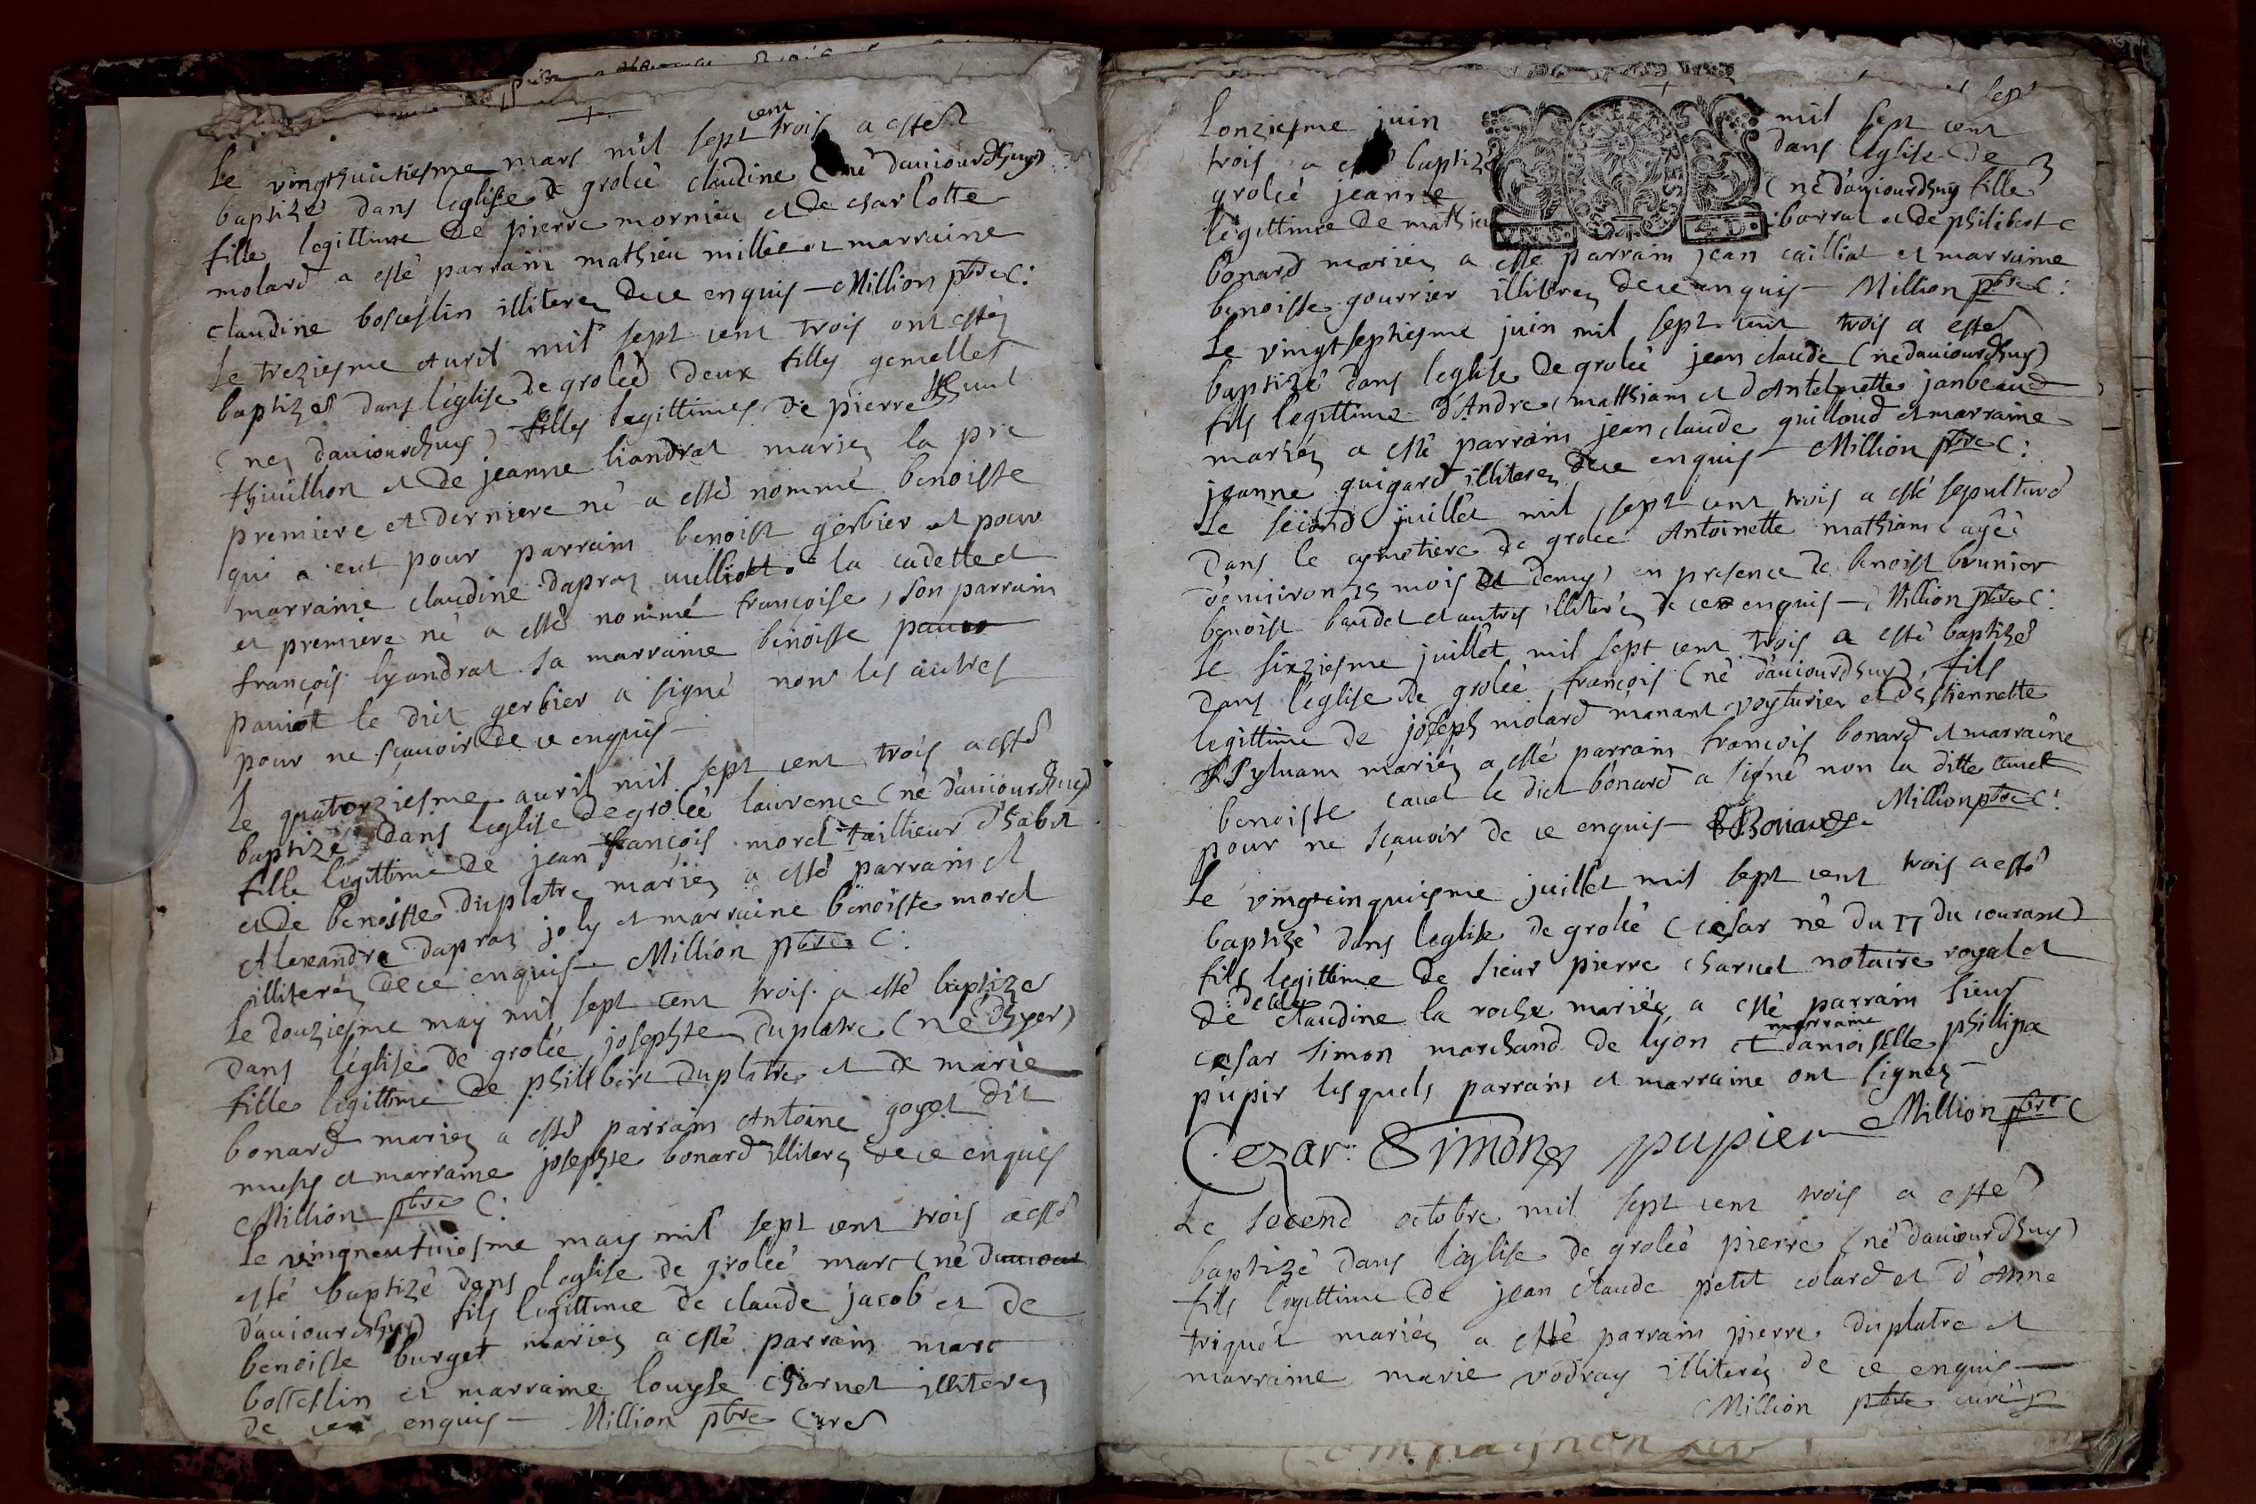 Le vingthuictiesme mars mil sept cent trois a esté
baptizé dans leglise de groleé claudine (né daujourdhuy)
fille legittime de pierre mornieu et de charlotte
molard a esté parrain mathieu millie et marraine
claudine bosceslin illiterez de ce enquis – Million pbre C:
Le treziesme avril mil sept cent trois ont estéz
baptizés dans leglise de groleé deux filles gemelles
(nez daujourdhuy) filles legittimes de pierre
thivillion et de jeanne liandrat mariez la pre
premiere et derniere né a esté nommé benoiste
qui a eut pour parrain benoist gerbier et pour
marraine claudine dapraz la cadette et
et premiere né a esté nommé françoise, son parrain
françois lyandrat sa marraine benoisse
paviot le dict gerbier a signé non les autres
pour ne sçavoir de ce enquis –
Le quatorziesme avril mil sept cent trois a esté
baptizé dans leglise de groleé laurence (né daujourdhuy)
fille legittime de jean françois morel taillieur d'habit
et de benoiste duplatre mariez a esté parrain et
Alexandre dapraz joly et marraine benoiste morel
illiteréz de ce enquis – Million pbre C:
Le douziesme may mil sept cent trois a esté baptizé
dans léglise de groleé josephte duplatre (né dhyer)
fille legittime de philibert duplatre et de marie
bonard mariez a esté parrain Antoine goyet dit
et marraine josephte bonard illiterez de ce enquis
Million pbre C:
Le vingneufviesme may mil sept cent trois a esté
esté baptizé dans leglise de groleé marc (né
daujourdhuy) fils legittime de claude jacob et de
benoiste burget mariez a esté parrain marc
bosceslin et marraine louyse charvet illiterez
de ce enquis – Million pbre Curé
Lonziesme juin mil sept cent
trois a esté baptizé dans leglise de
groleé jeanne (né daujourdhuy fille
légittime de mathieu barrat et de philiberte
bonard mariez a esté parrain jean cailliat et marraine
benoisse gourrier illiterez de ce enquis – Million pbre C:
Le vingtseptiesme juin mil sept cent trois a esté
baptizé dans leglise de groleé jean claude (né daujourdhuy)
fils legittime d'Andre matthiam et d'Antelmette janbeaud
mariéz a esté parrain jean claude guilloud et marraine
jeanne guigard illiterez de ce enquis – Million pbre C:
Le second juillet mil sept cent trois a esté sepulturé
dans le cymetiere de groleé Antoinette mathiam ageé
d'environ 15 mois et demy, en presence de benoist brunier
benoist baudet et autres illiteréz de ce enquis – Million pbre C:
Le sixziesme juillet mil sept cent trois a esté baptizé
dans l'église de groleé françois (né daujourdhuy) fils
legittime de joseph molard manant voyturier et destiennette
sylvam mariéz a esté parrain francois bonard et marraine
benoiste cavet le dict bonard a signé non la ditte cavet
pour ne sçavoir de ce enquis – FBonard Million pbre C:
Le vingtcinquiesme juillet mil sept cent trois a esté
baptizé dans leglise de groleé (cesar né du 17 du courant)
fils legittime de sieur pierre charvet notaire royal et
de delle claudine la roche mariéz a esté parrain sieur
cesar simon marchand de lyon et marraine damoiselle phillipe
pupir lesquels parrain et marraine ont signez –
Cezar Simon pupier Million pbre C
Le second octobre mil sept cent trois a esté
baptizé dans leglise de groleé pierre (né daujourdhuy)
fils legittime de jean claude petit colard et d'Anne
triquet mariéz a esté parrain pierre duplatre et
marraine marie vodray illiteréz de ce enquis –
Million pbre curé